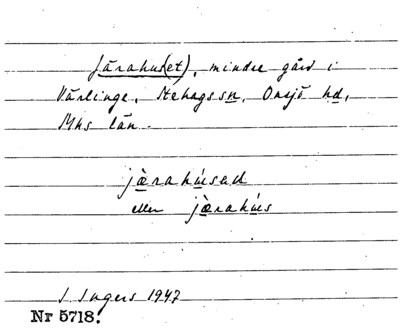 Järahus(et), mindre gård i
Värlinge, Stehags sn, Onsjö hd,
Mhs län.
jæ̀rahúsad
eller jæ̀rahús
I. Ingers 1947
Nr 5718.